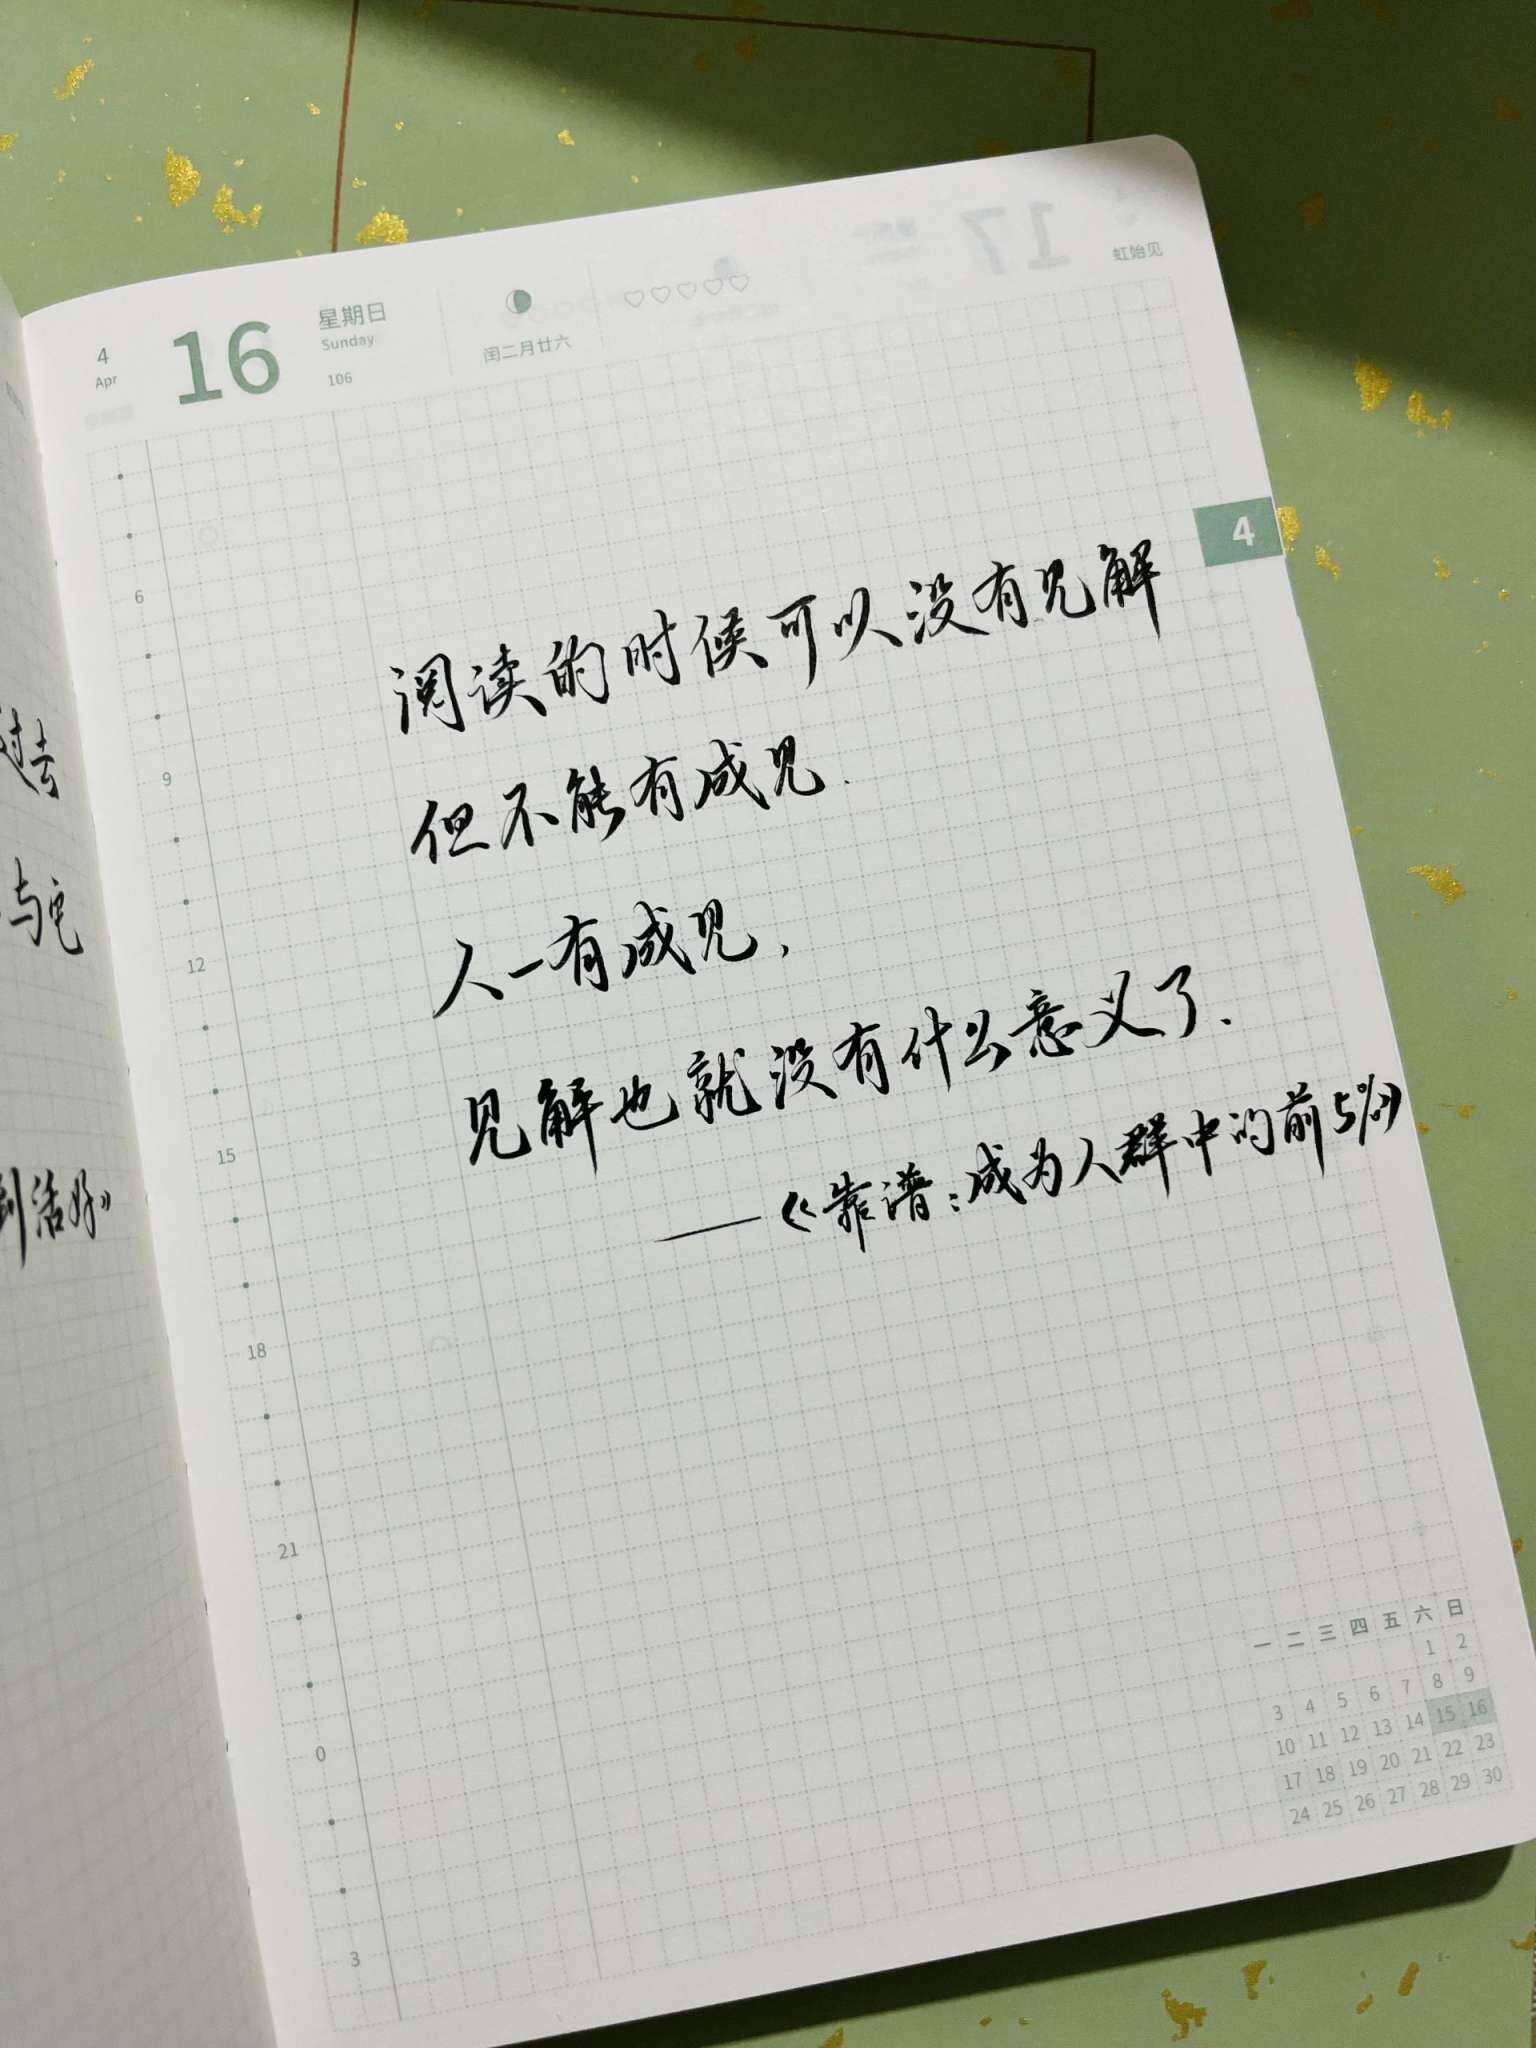 过去
与它
到活好》
4
Apr
16
星期日
Sunday
106
闰二月廿六
虹始见
4
阅读的时候可以没有见解
但不能有成见.
人一有成见,
见解也就没有什么意义了.
——《靠谱:成为人群中的前5%》
6
9
12
15
18
21
0
3
一 二 三 四 五 六 日
1 2
3 4 5 6 7 8 9
10 11 12 13 14 15 16
17 18 19 20 21 22 23
24 25 26 27 28 29 30